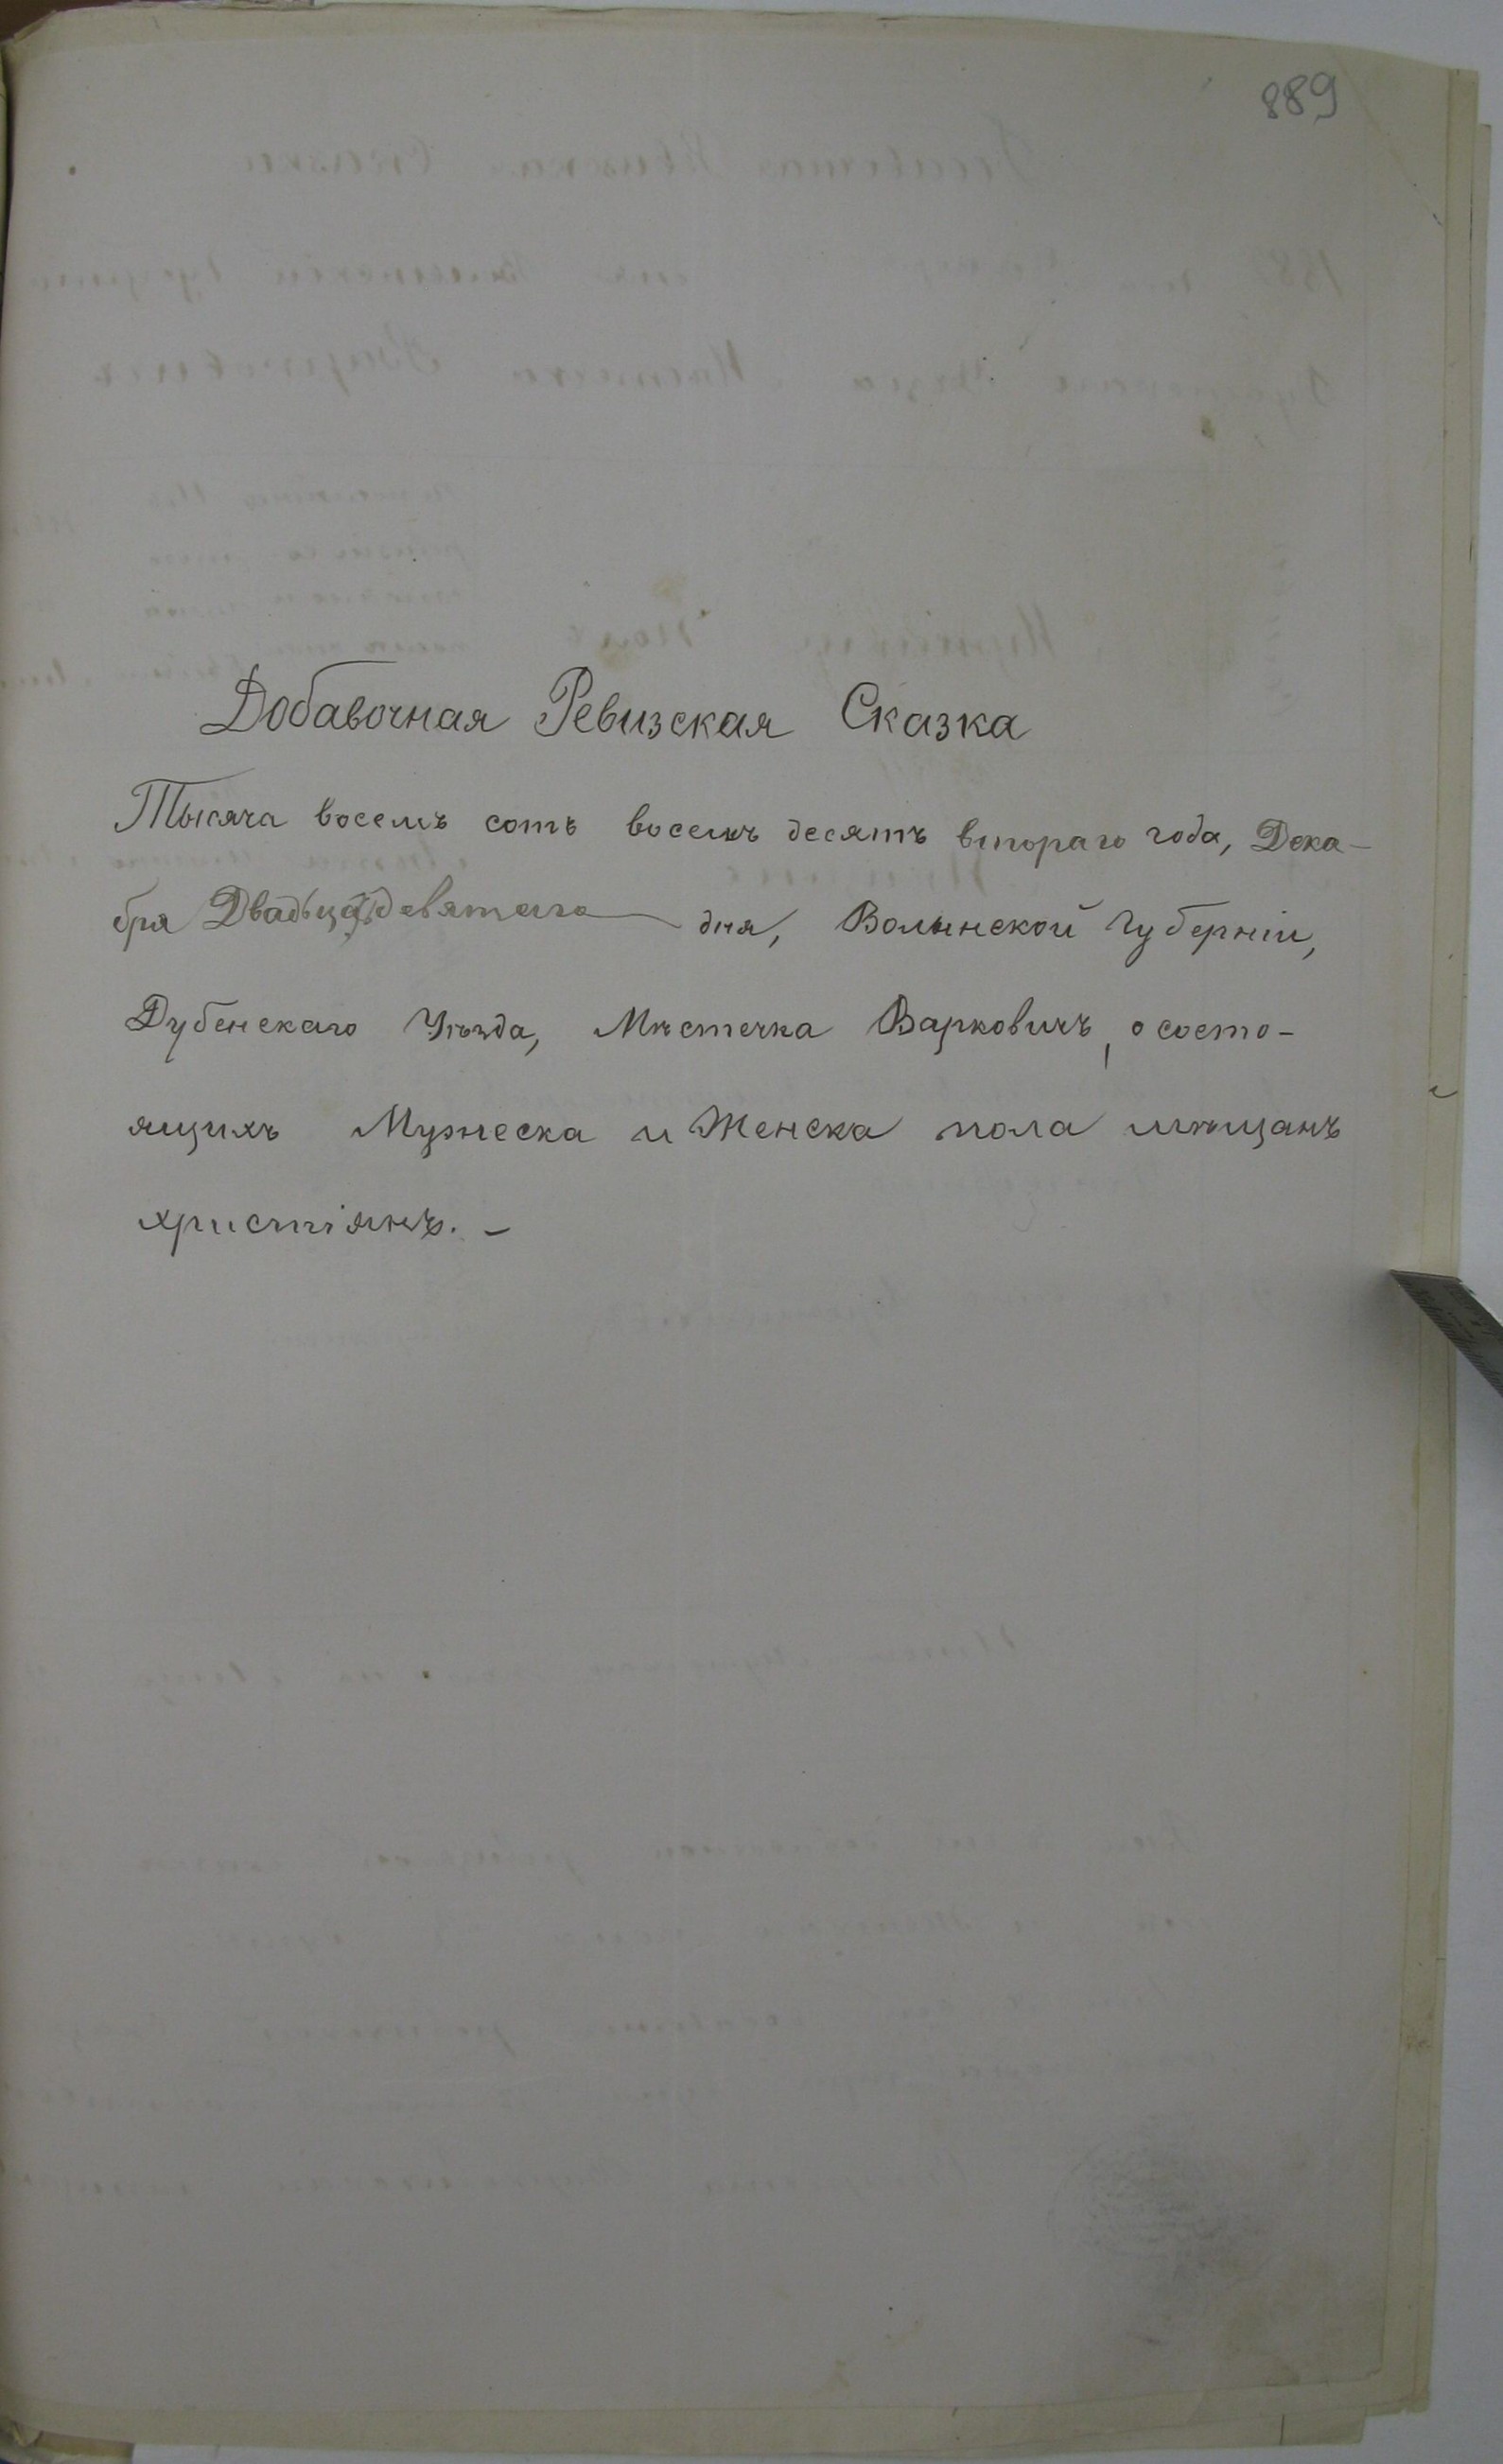 889
Добавочная Ревизская Сказка
Тысяча восемъ сотъ восемъ десятъ втораго года, Дека-
бря Двадьцатдевятаго дня, Волынской губерніи,
Дубенскаго Уѣзда, Мѣстечка Варковичъ, о состо-
ящихъ Мужеска и Женска пола мѣщанъ
христіянъ. -